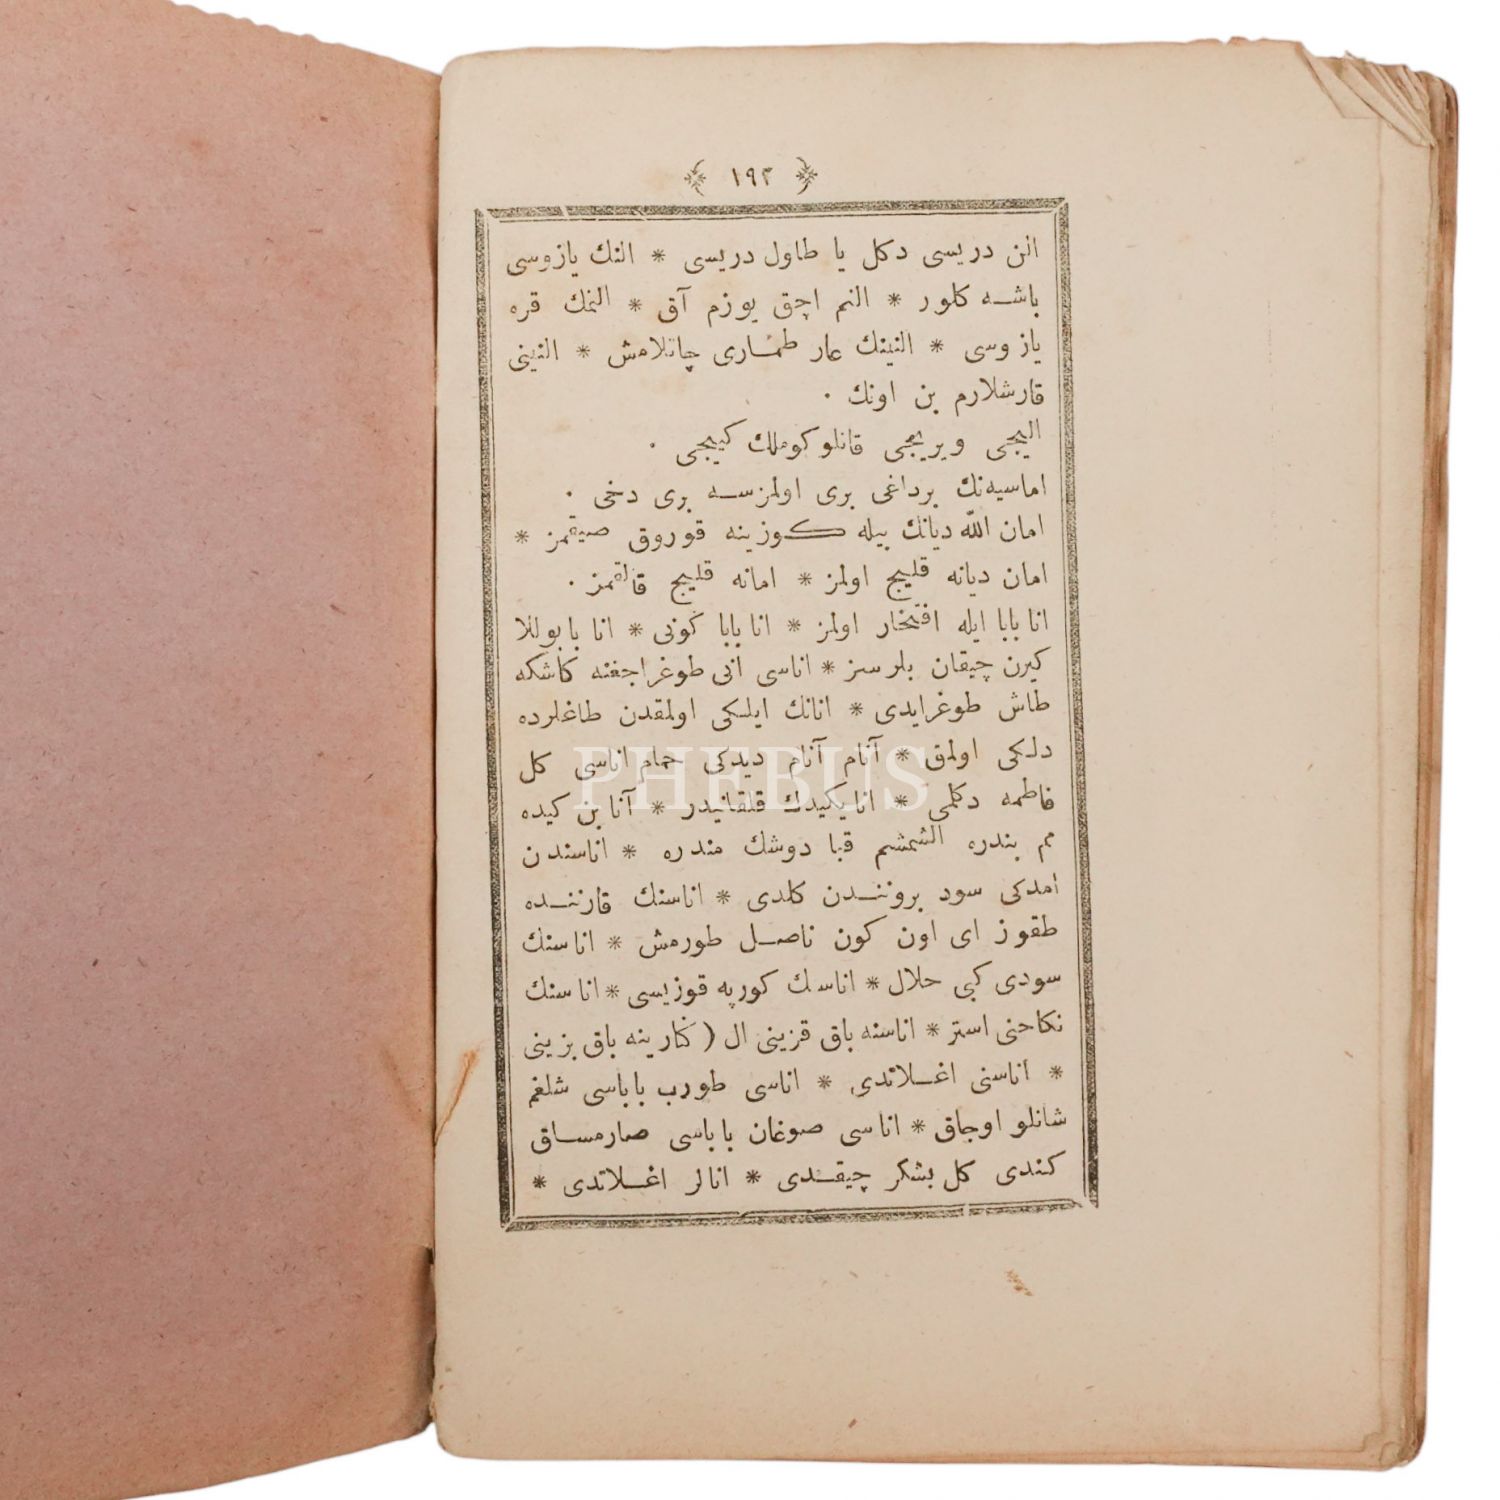 ١٩٣
الن دریسی دکل یا طاول دریسی * النك یازوسی
باشه کلور * النم اچق یوزم آق * النمك قره
یازوسی * النینك عار طماری چاتلامش * النینی
قارشلارم بن اونك .
الیجی ویریجی قانلو کوملك کییجی .
اماسیه‌نك برداغی بری اولمزسه بری دخی .
امان الله دیانك بیله کوزینه قوروق صیقمز *
امان دیانه قلیج اولمز * امانه قلیج قالقمز .
انا بابا ایله افتخار اولمز * انا بابا کونی * انا بابوللا
کیرن چیقان بلرسز * اناسی انی طوغراجغنه کاشکه
طاش طوغرایدی * انانك ایلکی اولمقدن طاغلرده
دلکی اولمق * آنام آنام دیدکی حمام اناسی کل
فاطمه دکلمی * انا یکیدك قلقانیدر * آنا بن کیده
مم بندره الشمشم قبا دوشك مندره * اناسندن
امدکی سود بروننندن کلدی * اناسنك قارننده
طقوز ای اون کون ناصل طورمش * اناسنك
سودی کبی حلال * اناسنك کورپه قوزیسی * اناسنك
نکاحنی استر * اناسنه باق قزینی ال ( کنارینه باق بزینی
* اناسنی اغلاتدی * اناسی طورب باباسی شلغم
شانلو اوجاق * اناسی صوغان باباسی صارمساق
کندی کل بشکر چیقدی * انالر اغلاتدی *
PHEBUS